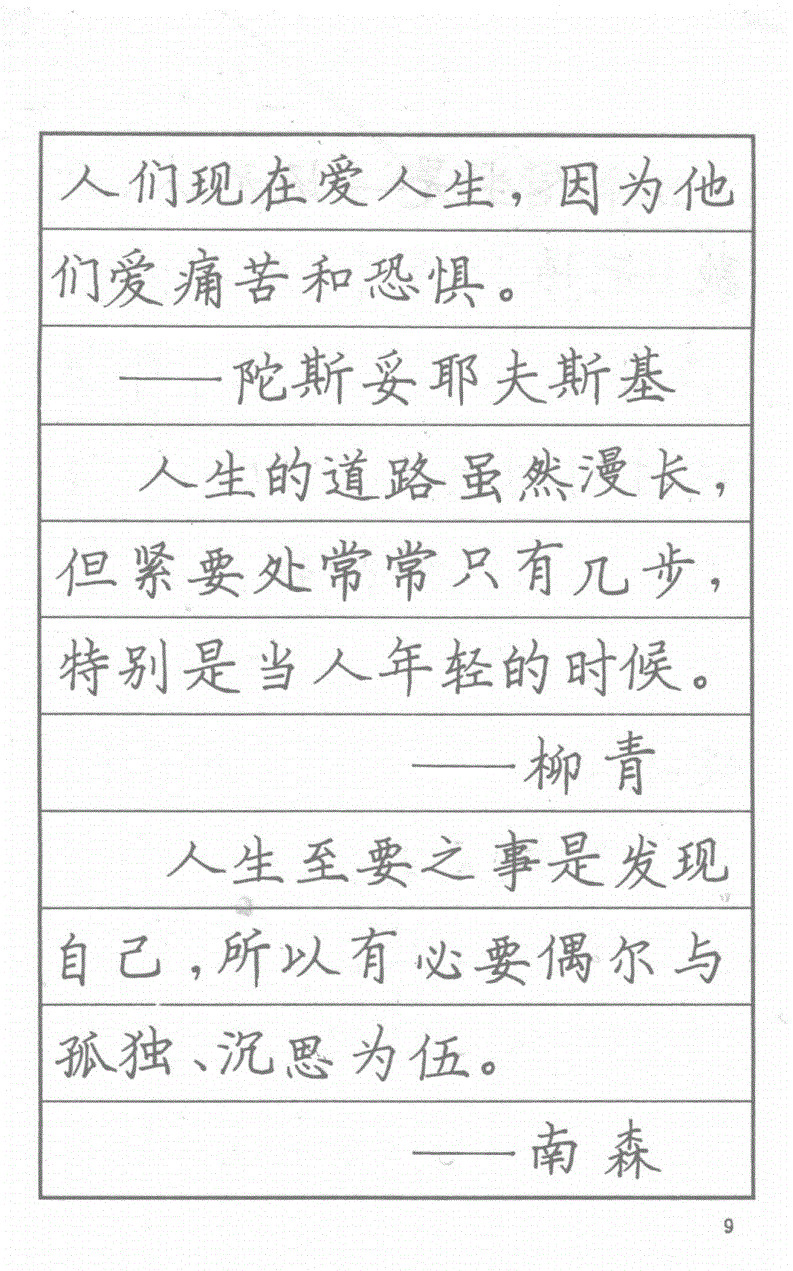 人们现在爱人生，因为他
们爱痛苦和恐惧。
——陀斯妥耶夫斯基
人生的道路虽然漫长，
但紧要处常常只有几步，
特别是当人年轻的时候。
——柳青
人生至要之事是发现
自己，所以有必要偶尔与
孤独、沉思为伍。
——南森
9